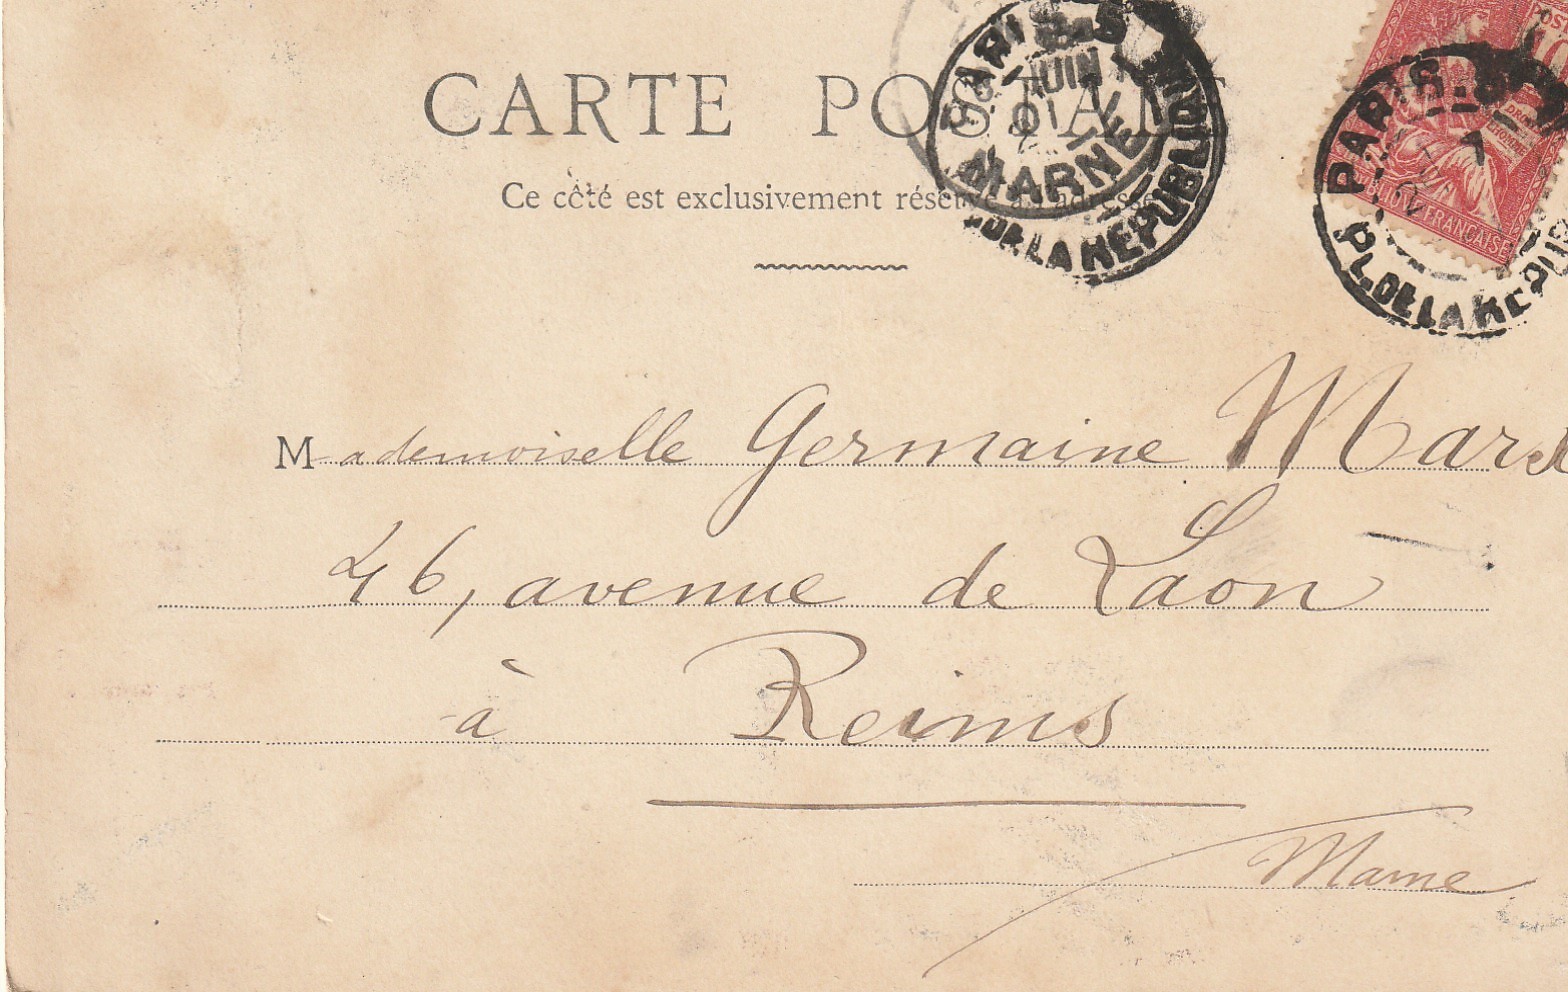 CARTE POSTALE
Ce côté est exclusivement réservé à l'adresse
PARIS
JUIN
01
MARNE
LA REPUBLIQUE
PARIS
PL. DE LA REPUB
FRANÇAISE
Mademoiselle Germaine
46, avenue de Laon
à Reims
Marne